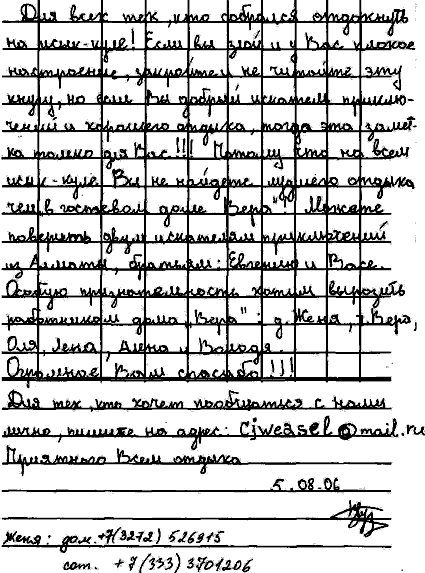 Для всех тех, кто собрался отдохнуть
на исык-куле! Если вы злой и у Вас плохое
настроение, закройте и не читайте эту
книгу, но если Вы добрый искатель приклю-
чений и хорошего отдыха, тогда эта замет-
ка только для Вас!!! Потому что на всем
исык-куле Вы не найдете лучшего отдыха
чем в гостевом доме „Вера“. Можете
поверить двум искателям приключений
из Алматы, братьям: Евгению и Васе.
Особую признательность хотим выразить
работникам дома „Вера“: д. Женя, т. Вера,
Оля, Лена, Алена и Володя
Огромное Вам спасибо!!!
Для тех, кто хочет пообщаться с нами
лично, пишите на адрес: cjweasel@mail.ru
Приятного Всем отдыха
5.08.06
Женя: дом. +7(3272) 526915
сот. +7(333) 3701206